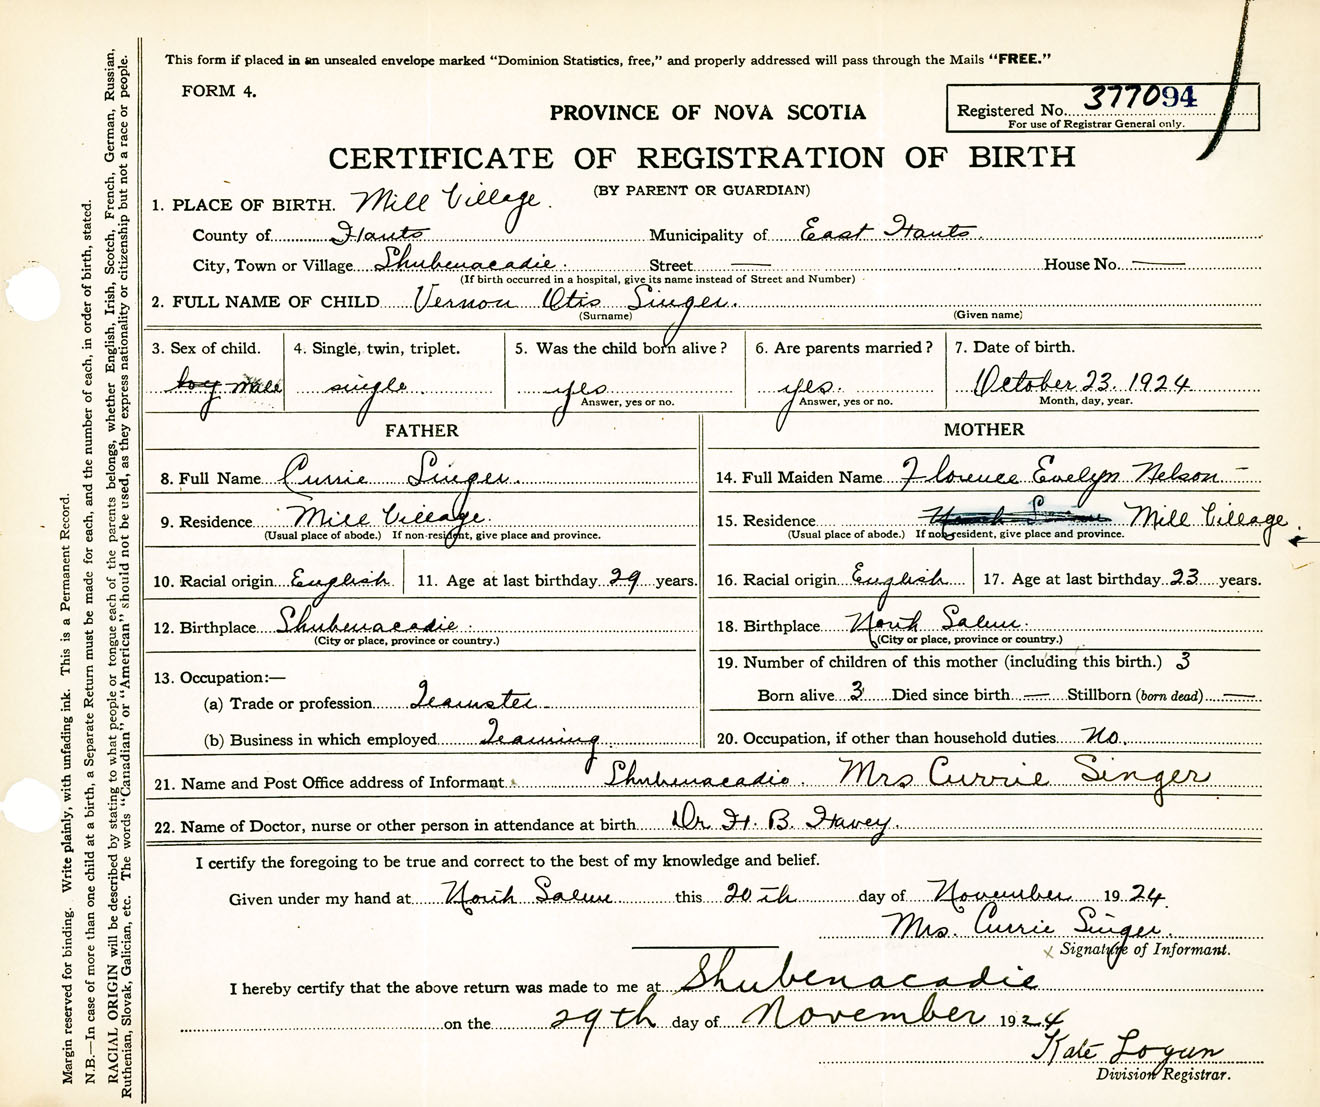 This form if placed in an unsealed envelope marked "Dominion Statistics, free," and properly addressed will pass through the Mails "FREE."
FORM 4.
Registered No. 377094
For use of Registrar General only.
PROVINCE OF NOVA SCOTIA
CERTIFICATE OF REGISTRATION OF BIRTH
(BY PARENT OR GUARDIAN)
1. PLACE OF BIRTH. Mill Village.
County of Hants Municipality of East Hants.
City, Town or Village Shubenacadie. Street — House No. —
(If birth occurred in a hospital, give its name instead of Street and Number)
2. FULL NAME OF CHILD Vernon Otis Singer.
(Surname) (Given name)
3. Sex of child. 4. Single, twin, triplet. 5. Was the child born alive? 6. Are parents married? 7. Date of birth.
boy male single yes yes. October 23. 1924.
Answer, yes or no. Answer, yes or no. Month, day, year.
FATHER MOTHER
8. Full Name Currie Singer. 14. Full Maiden Name Florence Evelyn Nelson —
9. Residence Mill Village. 15. Residence Mill Village.
(Usual place of abode.) If non-resident, give place and province. (Usual place of abode.) If non-resident, give place and province.
10. Racial origin English 11. Age at last birthday 29 years. 16. Racial origin English 17. Age at last birthday 23 years.
12. Birthplace Shubenacadie. 18. Birthplace North Salem.
(City or place, province or country.) (City or place, province or country.)
13. Occupation:— 19. Number of children of this mother (including this birth.) 3
(a) Trade or profession Teamster Born alive 3 Died since birth — Stillborn (born dead) —
(b) Business in which employed Teaming 20. Occupation, if other than household duties No.
21. Name and Post Office address of Informant Shubenacadie. Mrs Currie Singer
22. Name of Doctor, nurse or other person in attendance at birth Dr H. B. Havey.
I certify the foregoing to be true and correct to the best of my knowledge and belief.
Given under my hand at North Salem this 20th day of November 1924.
Mrs. Currie Singer.
x Signature of Informant.
I hereby certify that the above return was made to me at Shubenacadie
on the 29th day of November 1924
Kate Logan
Division Registrar.
Margin reserved for binding. Write plainly, with unfading ink. This is a Permanent Record.
N.B.—In case of more than one child at a birth, a Separate Return must be made for each, and the number of each, in order of birth, stated.
RACIAL ORIGIN will be described by stating to what people or tongue each of the parents belongs, whether English, Irish, Scotch, French, German, Russian,
Ruthenian, Slovak, Galician, etc. The words "Canadian" or "American" should not be used, as they express nationality or citizenship but not a race or people.